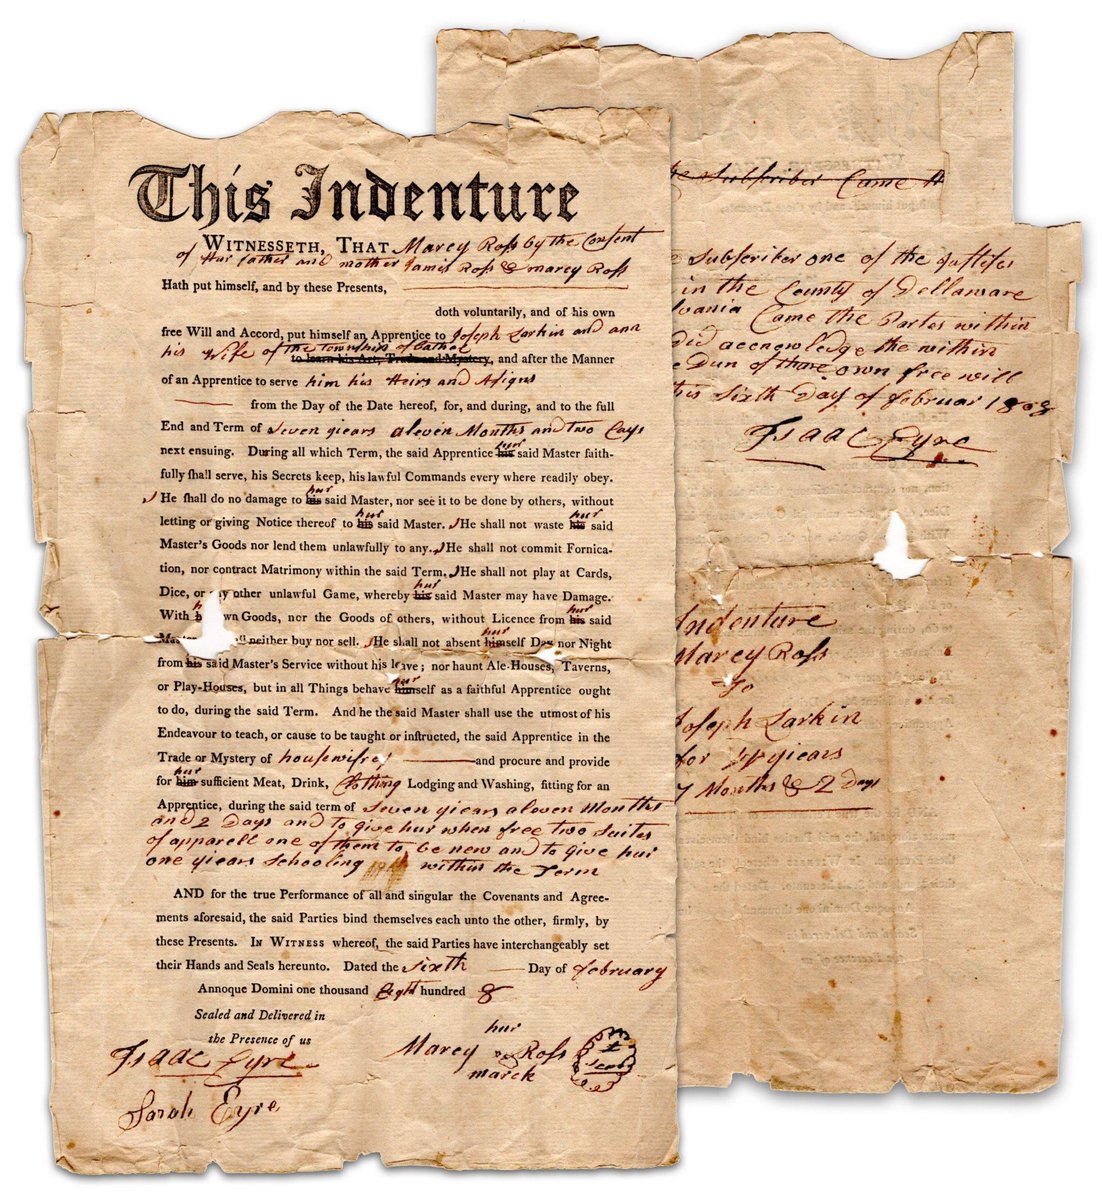 This Indenture
WITNESSETH, THAT Marey Roſs by the Conſent
of Hur father and mother Jamis Roſs & marey Roſs
Hath put himself, and by these Presents,
doth voluntarily, and of his own
free Will and Accord, put himself an Apprentice to Joſeph Larkin and ann
his Wife of the township of Bathel
to learn his Art, Trade and Mystery, and after the Manner
of an Apprentice to serve him his Heirs and Aſigns
from the Day of the Date hereof, for, and during, and to the full
End and Term of Seven yiears aleven Months and two Days
next ensuing. During all which Term, the said Apprentice his hur said Master faith-
fully ſhall serve, his Secrets keep, his lawful Commands every where readily obey.
He ſhall do no damage to his hur said Master, nor see it to be done by others, without
letting or giving Notice thereof to his hur said Master. He shall not waste his hur said
Master's Goods nor lend them unlawfully to any. He shall not commit Fornica-
tion, nor contract Matrimony within the said Term. He shall not play at Cards,
Dice, or any other unlawful Game, whereby his hur said Master may have Damage.
With own Goods, nor the Goods of others, without Licence from his hur said
neither buy nor sell. He shall not absent himself hur Day nor Night
from his said Master's Service without his leave; nor haunt Ale-Houses, Taverns,
or Play-Houses, but in all Things behave himself hur as a faithful Apprentice ought
to do, during the said Term. And he the said Master shall use the utmost of his
Endeavour to teach, or cause to be taught or inſtructed, the said Apprentice in the
Trade or Mystery of housewifrey and procure and provide
for him hur sufficient Meat, Drink, Clothing Lodging and Washing, fitting for an
Apprentice, during the said term of Seven yiears aleven Months
and 2 Days and to give hur when free two Suites
of apparell one of them to be new and to give hur
one yiears Schooling within the Term
AND for the true Performance of all and singular the Covenants and Agree-
ments aforesaid, the said Parties bind themselves each unto the other, firmly, by
these Presents. IN WITNESS whereof, the said Parties have interchangeably set
their Hands and Seals hereunto. Dated the Sixth Day of February
Annoque Domini one thousand Eight hundred 8
Sealed and Delivered in
the Presence of us
Isaac Eyre
Sarah Eyre
hur
Marey Roſs
marck
Seal
Subſcriber Came
Subſcriber one of the Juſtiſes
in the County of Dellaware
vania Came the Partes within
did accnewledge the within
Dun of thare own free will
this Sixth Day of februar 1808
Isaac Eyre
Indenture
Marey Roſs
To
Joſeph Larkin
for yiears
Months & 2 Days